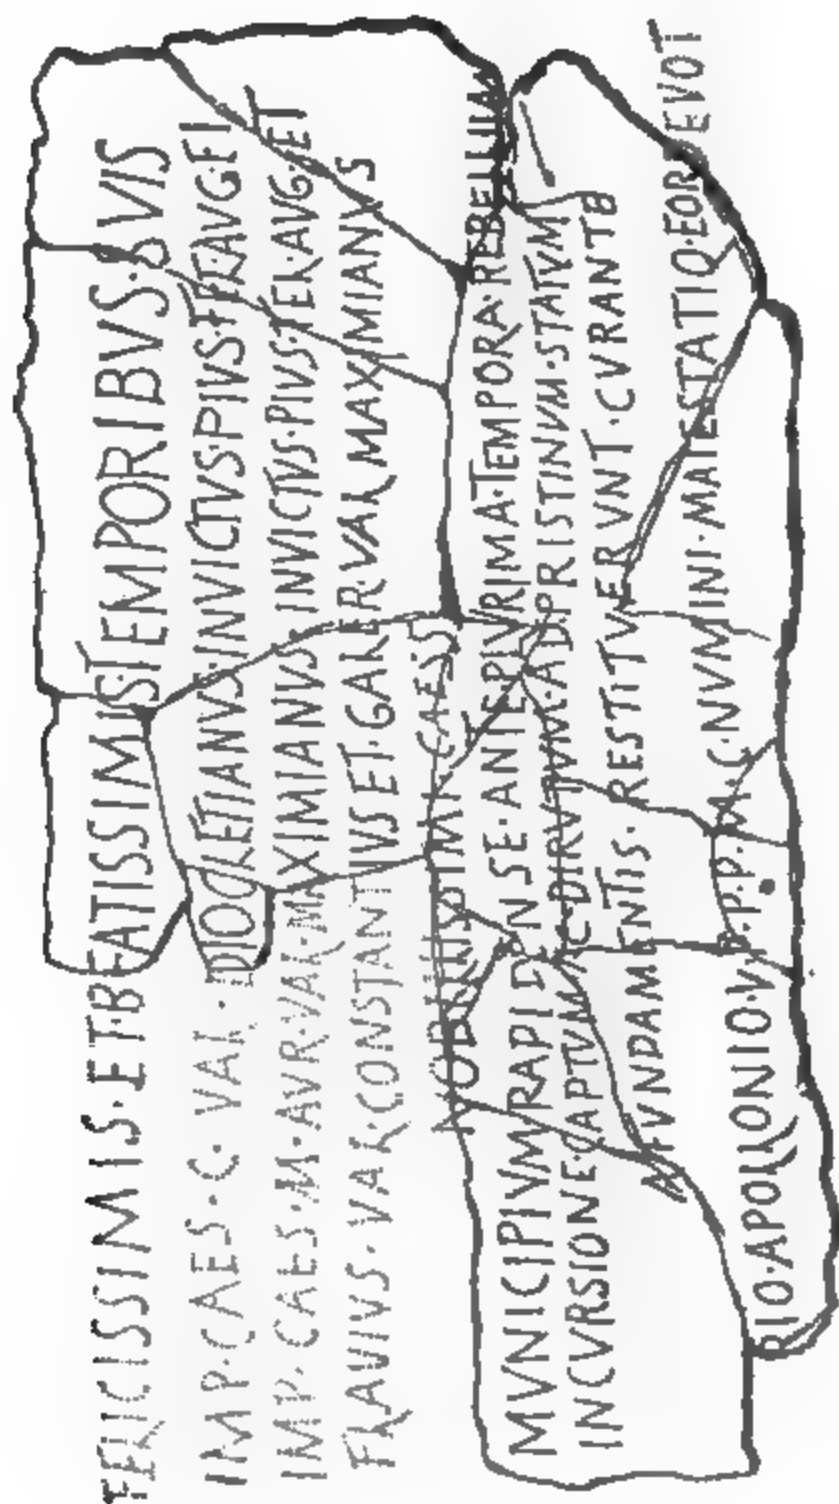 FELICISSIMIS·ET·BEATISSIMIS TEMPORIBVS·SVIS
IMP·CAES·C·VAL·DIOCLETIANVS·INVICTVS·PIVS·FEL·AVG·ET
IMP·CAES·M·AVR·VAL·MAXIMIANVS·INVICTVS·PIVS·FEL·AVG·ET
FLAVIVS·VAL·CONSTANTIVS ET·GALER·VAL MAXIMIANVS
NOBILISSIMI CAESS
MVNICIPIVM RAPIDENSE·ANTE PLVRIMA·TEMPORA·REBELLIVM
INCVRSIONE·CAPTVM AC·DIRVTVM·AD PRISTINVM·STATVM
A FVNDAMENTIS·RESTITVERVNT·CVRANTE
RIO·APOLLONIO·V·P·P·P·M·C·NVMINI·MAIESTATIQ·EOR DEVOT